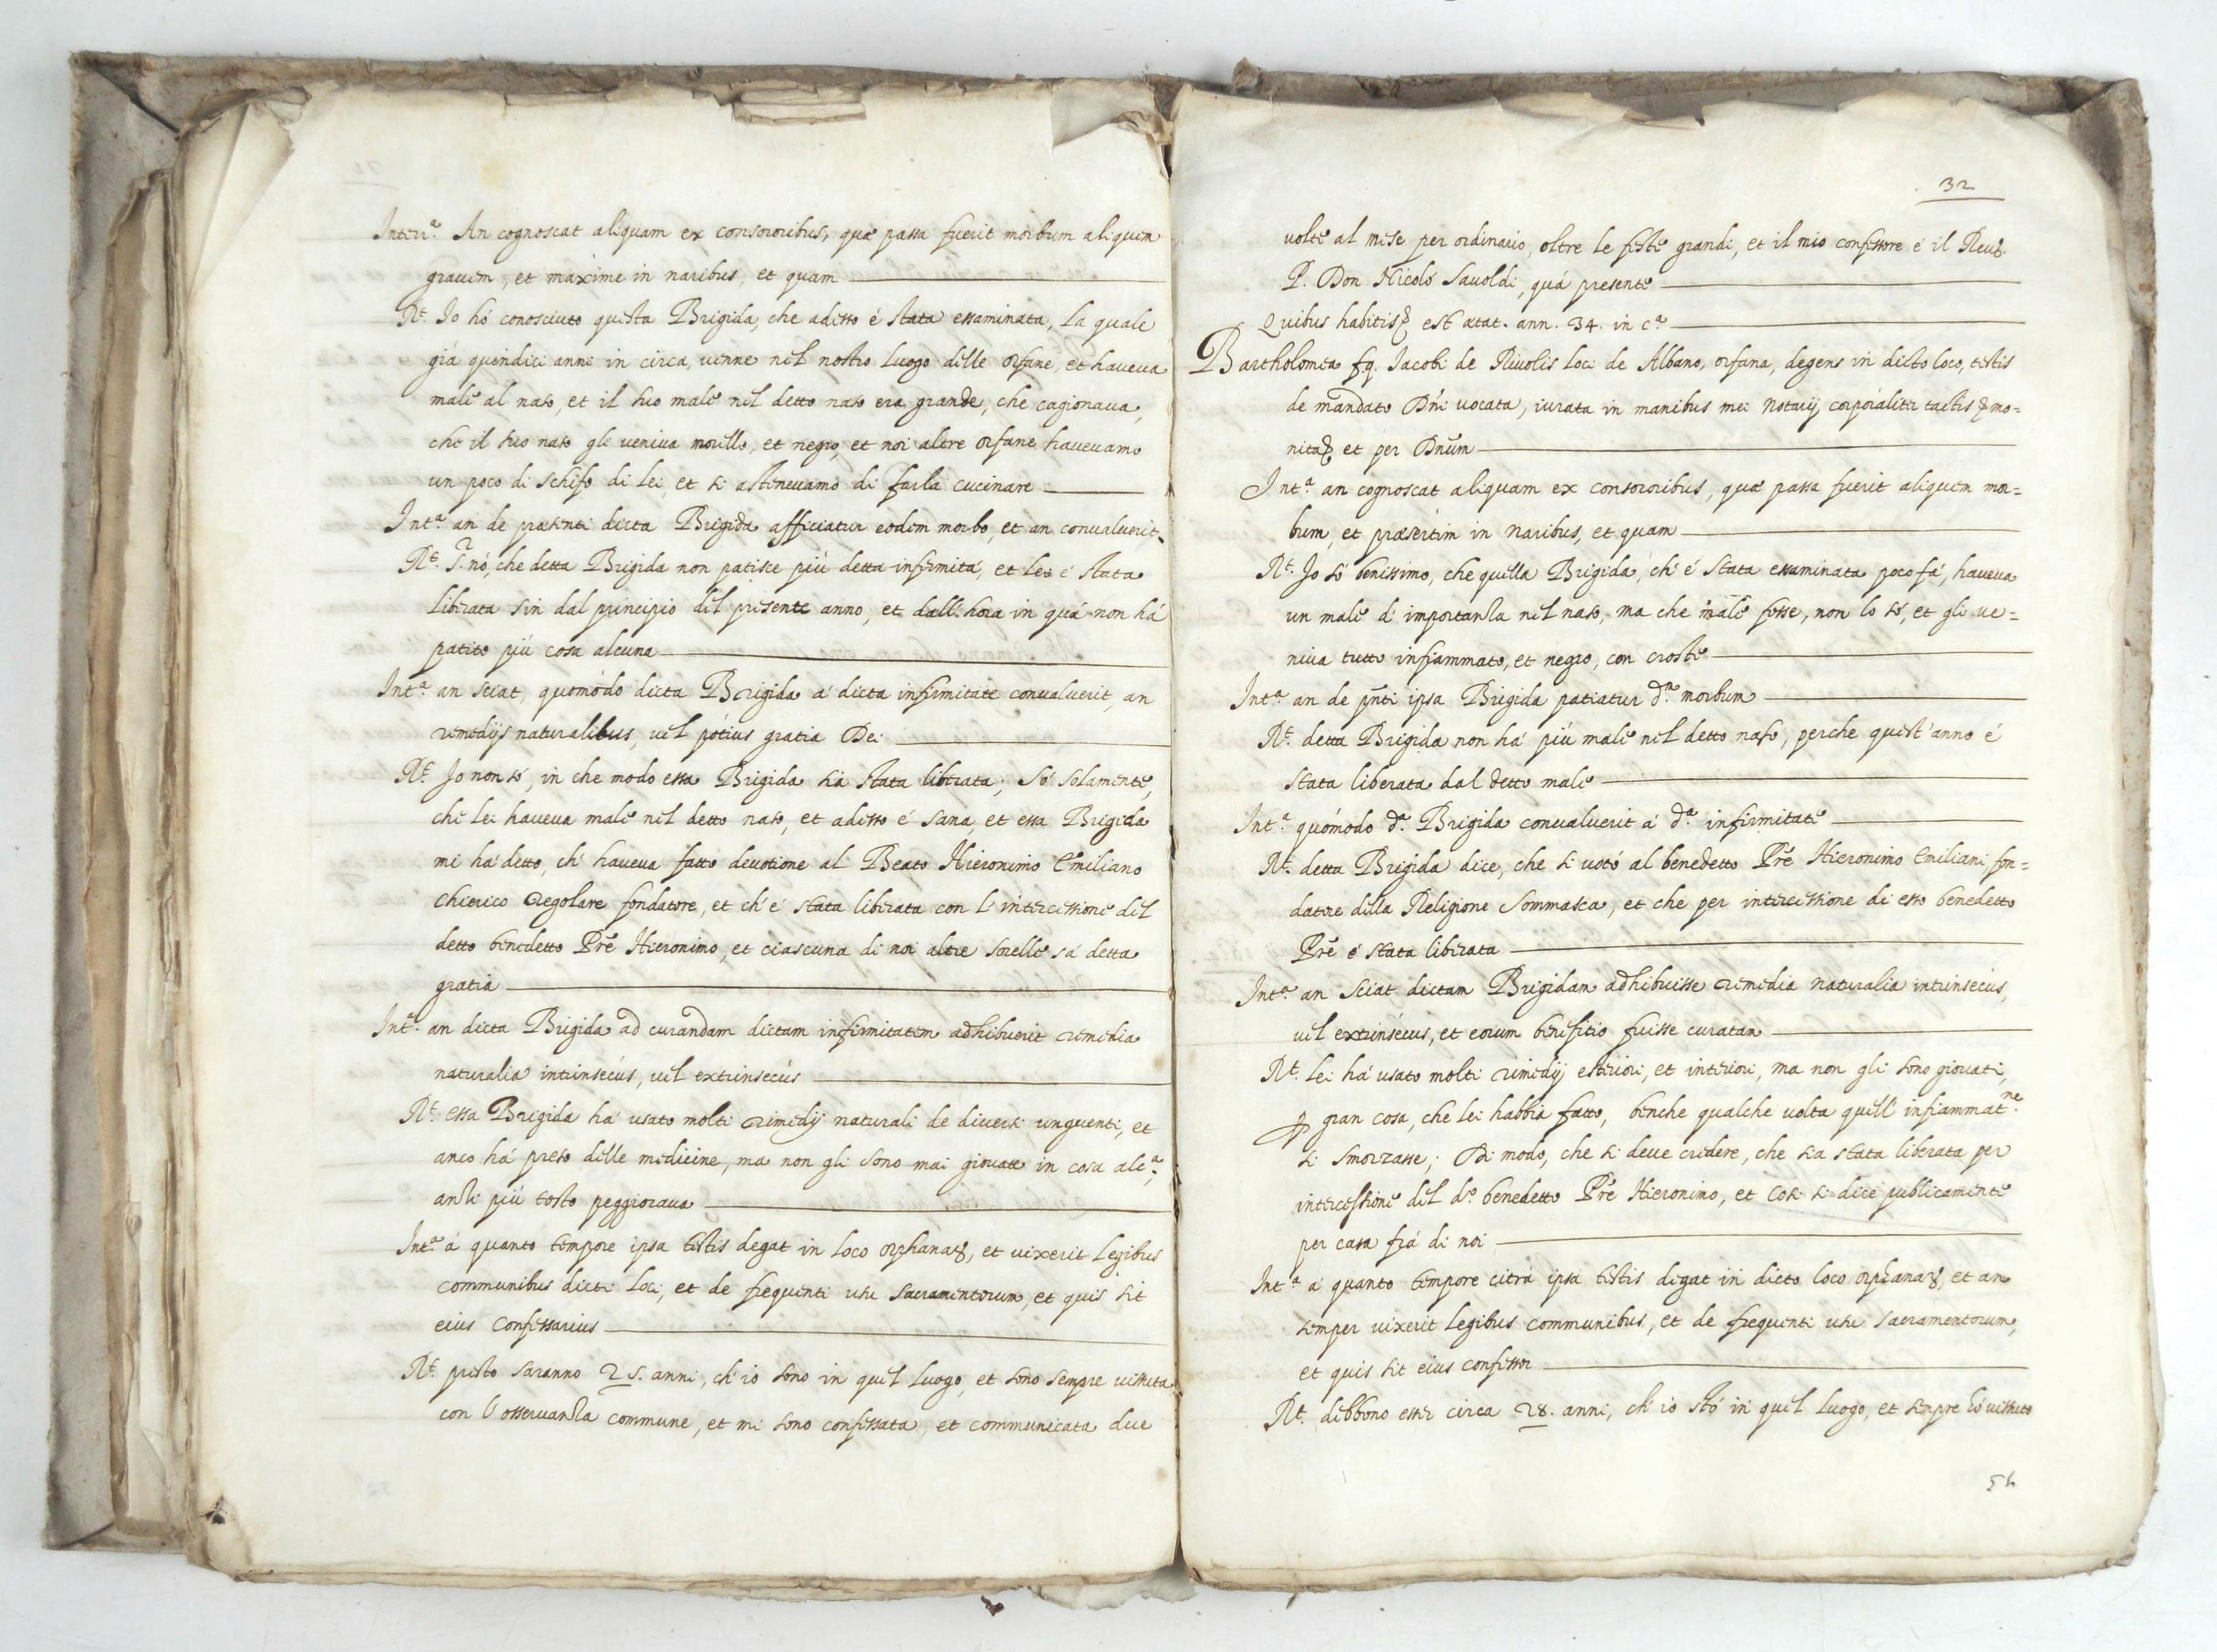 Interr.ª An cognoscat aliquam ex consororibus, quæ passa fuerit morbum aliquem
grauem, et maxime in naribus, et quam
R.t Io hó conosciuto questa Brigida, che adesso é stata essaminata, la quale
giá quindici anni in circa, uenne nel nostro Luogo delle orfane, et haueua
male al naso, et il suo male nel detto naso era grande, che cagionaua,
che il suo naso gli ueniua morello, et negro, et noi altre orfane haueuamo
un poco di schifo di lei, et si asteneuamo di farla cucinare
Int.ª an de præsenti dicta Brigida afficiatur eodem morbo, et an conualuerit
R.t S.r nó, che detta Brigida non patisce piú detta infirmitá, et lei é stata
liberata sin dal principio del presente anno, et dall'hora in quá non há
patito piú cosa alcuna
Int.ª an sciat, quomodo dicta Brigida á dicta infirmitate conualuerit, an
remedijs naturalibus, uel potius gratia Dei
R.t Io non só, in che modo essa Brigida sia stata liberata; Só solamente,
che lei haueua male nel detto naso, et adesso é sana, et essa Brigida
mi há detto, ch' haueua fatto deuotione al Beato Hieronimo Emiliano
chierico regolare fondatore, et ch'é stata liberata con l'intercessione del
detto benedetto Prẽ Hieronimo, et ciascuna di noi altre sorelle sá detta
gratia
Int.ª an dicta Brigida ad curandam dictam infirmitatem adhibuerit remedia
naturalia intrinsecús, uel extrinsecús
R.t essa Brigida há usato molti rimedij naturali de diuersi unguenti, et
anco há preso delle medicine, ma non gli sono mai giouate in cosa alc.ª,
anzi piú tosto peggioraua
Int.ª á quanto tempore ipsa testis degat in loco orphanaꝝ, et uixerit legibus
communibus dicti loci, et de frequenti usu sacramentorum, et quis sit
eius confessarius
R.t presto saranno 25. anni, ch'io sono in quel luogo, et sono sempre uissuta
con l'osseruanza commune, et mi sono confessata, et communicata due
32
uolte al mese per ordinario, oltre le feste grandi, et il mio confessore é il Reuꝰ.
P. Don Nicoló Sauoldi, quá presente
Quibus habitisꝫ est ætat. ann. 34. in c.ª
Bartholomea fq. Iacobi de Riuolis loci de Albano, orfana, degens in dicto loco, testis
de mandato Dñi uocata, iurata in manibus mei Notarij, corporaliter tactisꝫ mo=
nitaꝫ et per Dnũm
Int.ª an cognoscat aliquam ex consororibus, quæ passa fuerit aliquem mor=
bum, et præsertim in naribus, et quam
R.t Io só benissimo, che quella Brigida, ch'é stata essaminata poco fá, haueua
un male d'importanza nel naso, ma che male fosse, non lo só, et gli ue=
niua tutto infiammato, et negro, con croste
Int.ª an de pñti ipsa Brigida patiatur d.m morbum
R.t detta Brigida non há piú male nel detto naso, perche quest'anno é
stata liberata dal detto male
Int.ª quómodo d.ª Brigida conualuerit á d.ª infirmitate
R.t detta Brigida dice, che si uotó al benedetto Prẽ Hieronimo Emiliani fon=
datore della Religione Sommasca, et che per intercessione di esso benedetto
Prẽ é stata liberata
Int.ª an sciat dictam Brigidam adhibuisse remedia naturalia intrinsecús,
uel extrinsécus, et eorum benefitio fuisse curatam
R.t lei há usato molti rimedij esteriori, et interiori, ma non gli sono giouati,
ꝑ gran cosa, che lei habbia fatto, benche qualche uolta quell'infiammat.ne
si smorzasse; Di modo, che si deue credere, che sia stata liberata per
intercessione del d.o benedetto Prẽ Hieronimo, et cosi si dice publicamente
per casa frá di noi
Int.ª á quanto tempore citrá ipsa testis degat in dicto loco orphanaꝝ, et an
semper uixerit legibus communibus, et de frequenti usu sacramentorum,
et quis sit eius confessor
R.t debbono esser circa 28. anni, ch'io stó in quel luogo, et sempre hó uissuto